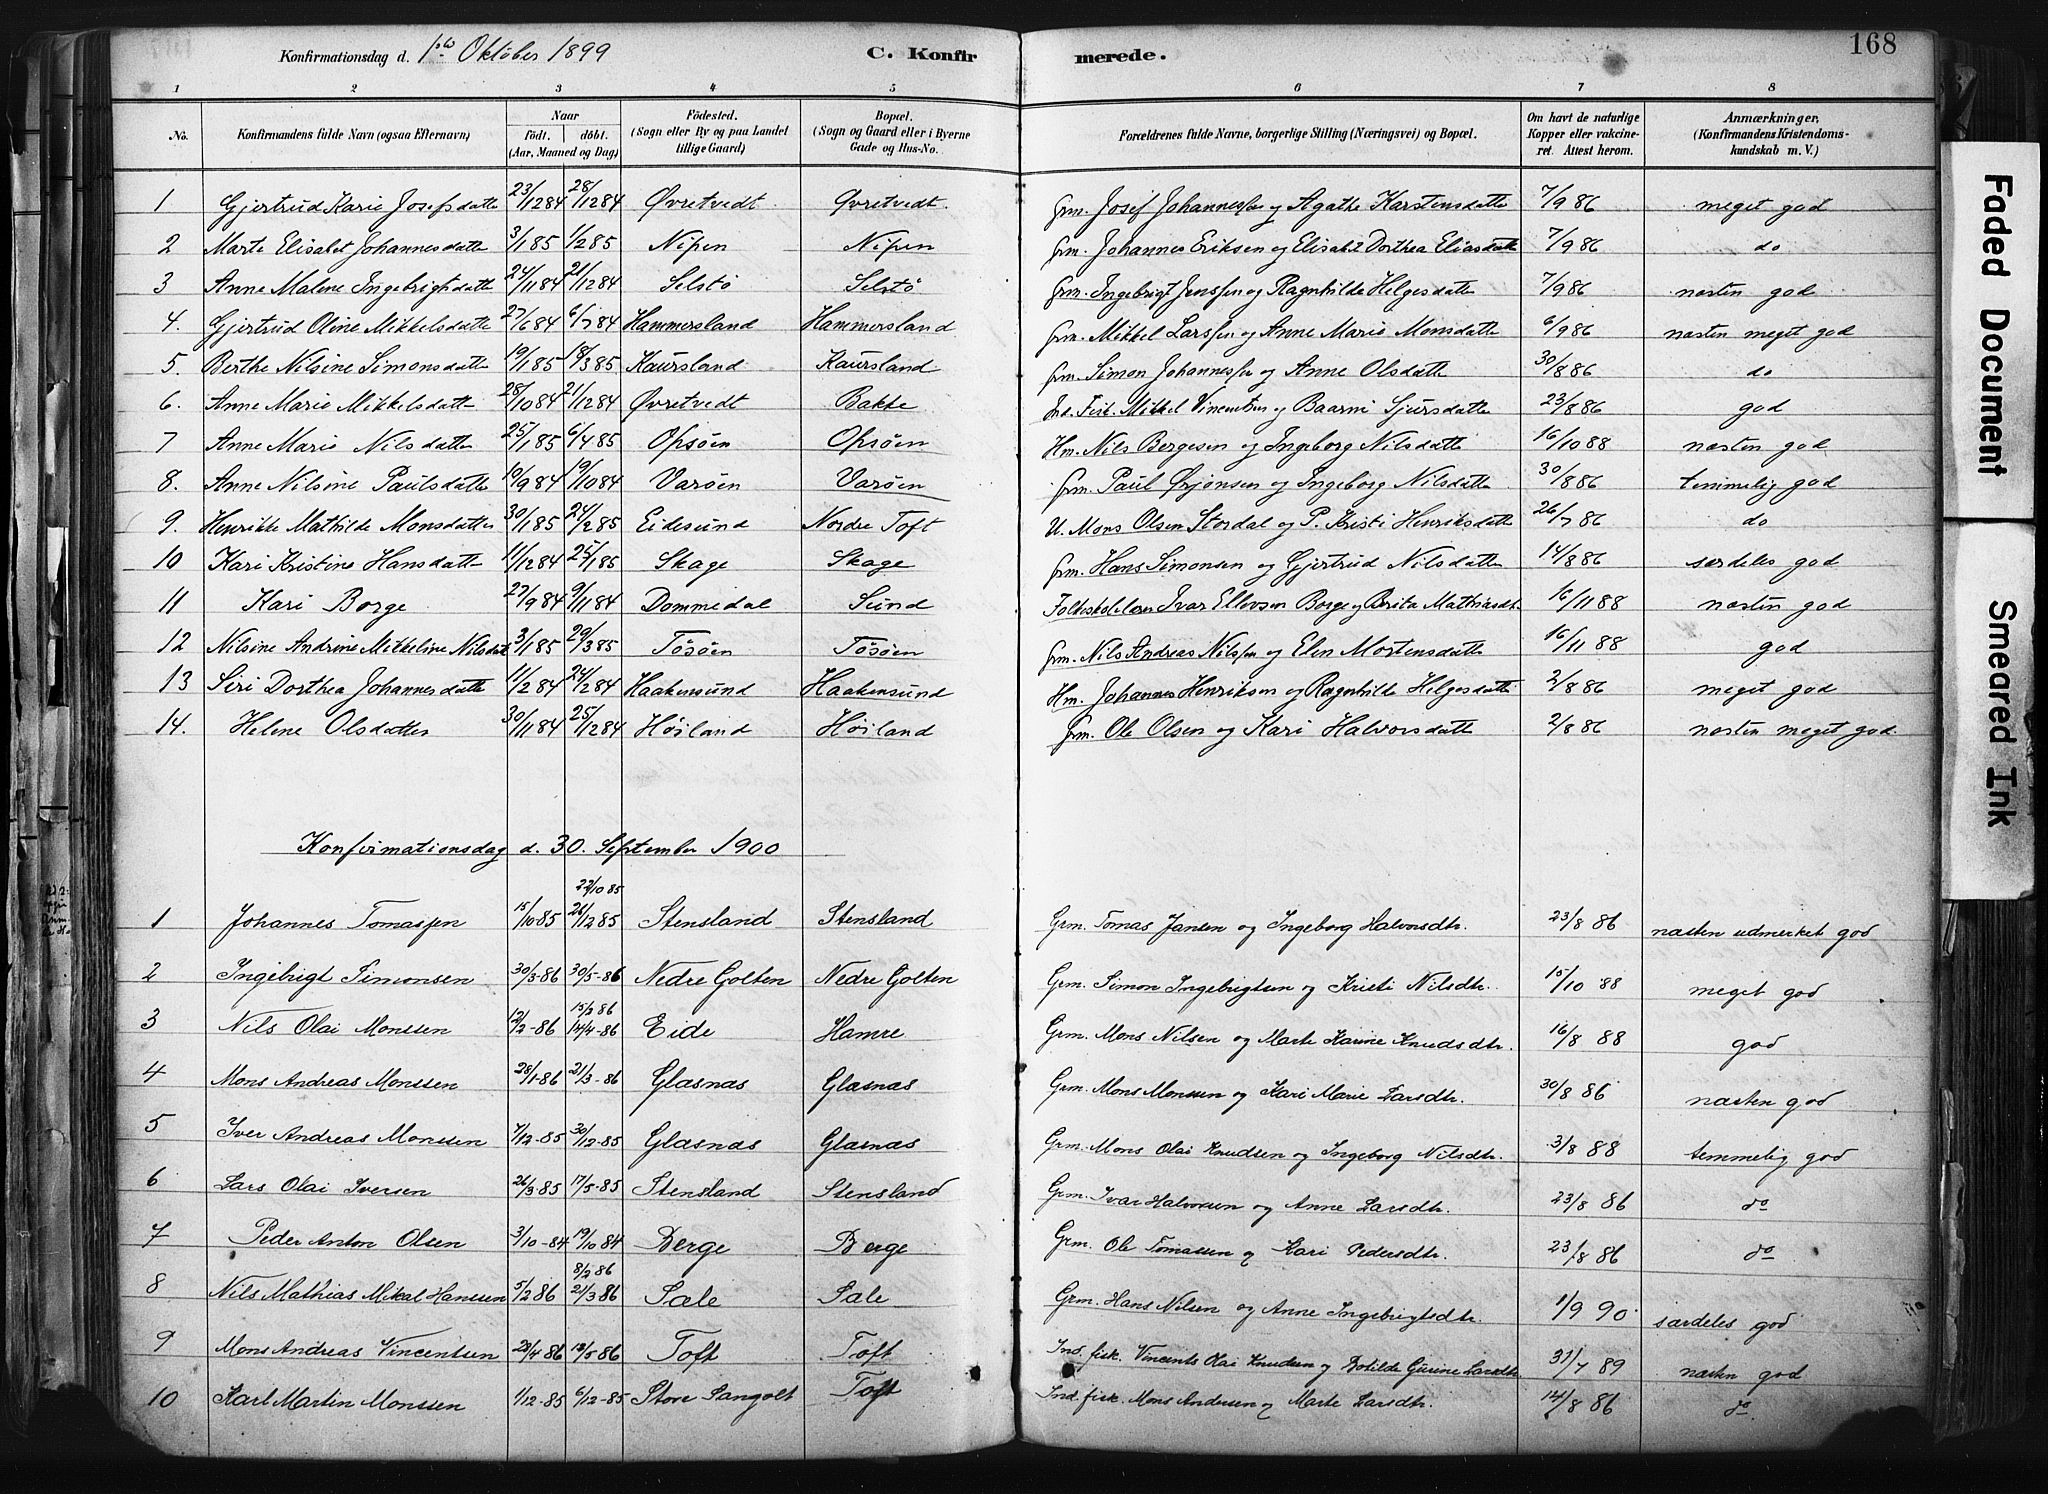 Konfirmationsdag d. 1ste Oktober 1899 C. Konfirmerede. 168
1 2 3 4 5 6 7 8
No. Konfirmandens fulde Navn (ogsaa Efternavn) Naar födt. döbt. (Aar, Maaned og Dag) Födested. (Sogn eller By og paa Landet tillige Gaard) Bopæl. (Sogn og Gaard eller i Byerne Gade og Hus-No. Forældrenes fulde Navne, borgerlige Stilling (Næringsvei) og Bopæl. Om havt de naturlige Kopper eller vakcineret. Attest herom. Anmærkninger, (Konfirmandens Kristendomskundskab m. V.)
1 Gjertrud Karie Josefsdatte 23/12 84 28/12 84 Øvretvedt Øvretvedt Grm. Josef Johannessen og Agathe Karstensdatte 7/9 86 meget god
2 Marte Elisabet Johannesdatte 3/1 85 1/2 85 Nipen Nipen Grm. Johannes Eriksen og Elisabet Dorthea Eliasdatte 7/9 86 do
3 Anne Malene Ingebrigtsdatte 24/11 84 21/12 84 Selstö Selstö Grm. Ingebrigt Jenssen og Ragnhilde Helgesdatte 7/9 86 næsten god
4. Gjertrud Oline Mikkelsdatte 27/6 84 6/7 84 Hammersland Hammersland Grm. Mikkel Larssen og Anne Marie Monsdatte 6/9 86 næsten meget god
5. Berthe Nilsine Simonsdatte 19/1 85 18/3 85 Kaursland Kaursland Grm. Simon Johannessen og Anne Olsdatte 30/8 86 do
6. Anne Marie Mikkelsdatte 28/10 84 21/12 84 Øvretvedt Bakke Ind. Fisk. Mikkel Vincentsen og Baarni Sjursdatte 23/8 86 god
7 Anne Marie Nilsdatte 25/1 85 6/4 85 Opsöen Opsöen Hm. Nils Bergesen og Ingeborg Nilsdatte 16/10 88 næsten god
8. Anne Nilsine Paulsdatte 10/9 84 19/10 84 Varöen Varöen Grm. Paul Ørjansen og Ingeborg Nilsdatte 30/8 86 temmelig god
9. Henrikke Mathilde Monsdatter 30/1 85 24/2 85 Eidesund Nordre Toft U. Mons Olsen Stordal og P. Kristi Henriksdatte 26/7 86 do
10 Kari Kristine Hansdatte 11/12 84 25/1 85 Skage Skage Grm. Hans Simonsen og Gjertrud Nilsdatte 14/8 86 særdeles god
11 Kari Borge 27/9 84 9/11 84 Dommedal Sund Folkeskolelærer Ivar Ellevsen Borge og Brita Mathiasdt. 16/11 88 næsten god
12 Nilsine Andrine Mikkeline Nilsdatte 3/1 85 29/3 85 Tösöen Tösöen Grm. Nils Andreas Nilssen og Elen Mortensdatte 16/11 88 god
13 Siri Dorthea Johannesdatte 11/2 84 24/2 84 Haakensund Haakensund Hm. Johannes Henriksen og Ragnhilde Helgesdatte 2/8 86 meget god
14. Helene Olsdatter 30/11 84 25/12 84 Höiland Höiland Grm. Ole Olsen og Kari Halvorsdatte 2/8 86 næsten meget god.
Konfirmationsdag d. 30. September 1900
22/10 85
1 Johannes Tomassen 15/10 85 26/12 85 Stensland Stensland Grm. Tomas Jansen og Ingeborg Halvorsdtr. 23/8 86 næsten udmerket god
2 Ingebrigt Simonsen 30/3-86 30/5-86 Nedre Golten Nedre Golten Grm. Simon Ingebrigtsen og Kristi Nilsdtr. 15/10 88 meget god
15/2 86
3 Nils Olai Monssen 12/2-86 14/4-86 Eide Hamre Grm. Mons Nilsen og Marte Karine Knudsdtr. 16/8 88 god
4 Mons Andreas Monssen 28/1-86 21/3-86 Glæsnæs Glæsnæs Grm. Mons Monssen og Kari Marie Larsdtr. 30/8 86 næsten god
5 Iver Andreas Monssen 7/12-85 30/12-85 Glæsnæs Glæsnæs Grm. Mons Olai Knudsen og Ingeborg Nilsdtr. 3/8 88 temmelig god
6 Lars Olai Iversen 26/3-85 17/5-85 Stensland Stensland Grm. Ivar Halvorsen og Anne Larsdtr. 23/8 86 do
7 Peder Anton Olsen 3/10-84 19/10 84 Berge Berge Grm. Ole Tomassen og Kari Pedersdtr. 23/8 86 do
8/2 86
8 Nils Mathias Mikal Hanssen 5/2 86 21/3 86 Sæle Sæle Grm. Hans Nilsen og Anne Ingebrigtsdtr. 1/9 90 særdeles god
9 Mons Andreas Vincentsen 28/4 86 18/5 86 Toft Toft Ind. fisk. Vincents Olai Knudsen og Botilde Gurine Larsdtr 31/7 89 næsten god
10 Karl Martin Monssen 1/12-85 6/12-85 Store Sangolt Toft Ind. fisk. Mons Andersen og Marte Larsdtr. 14/8 86 do
Faded Document
Smeared Ink